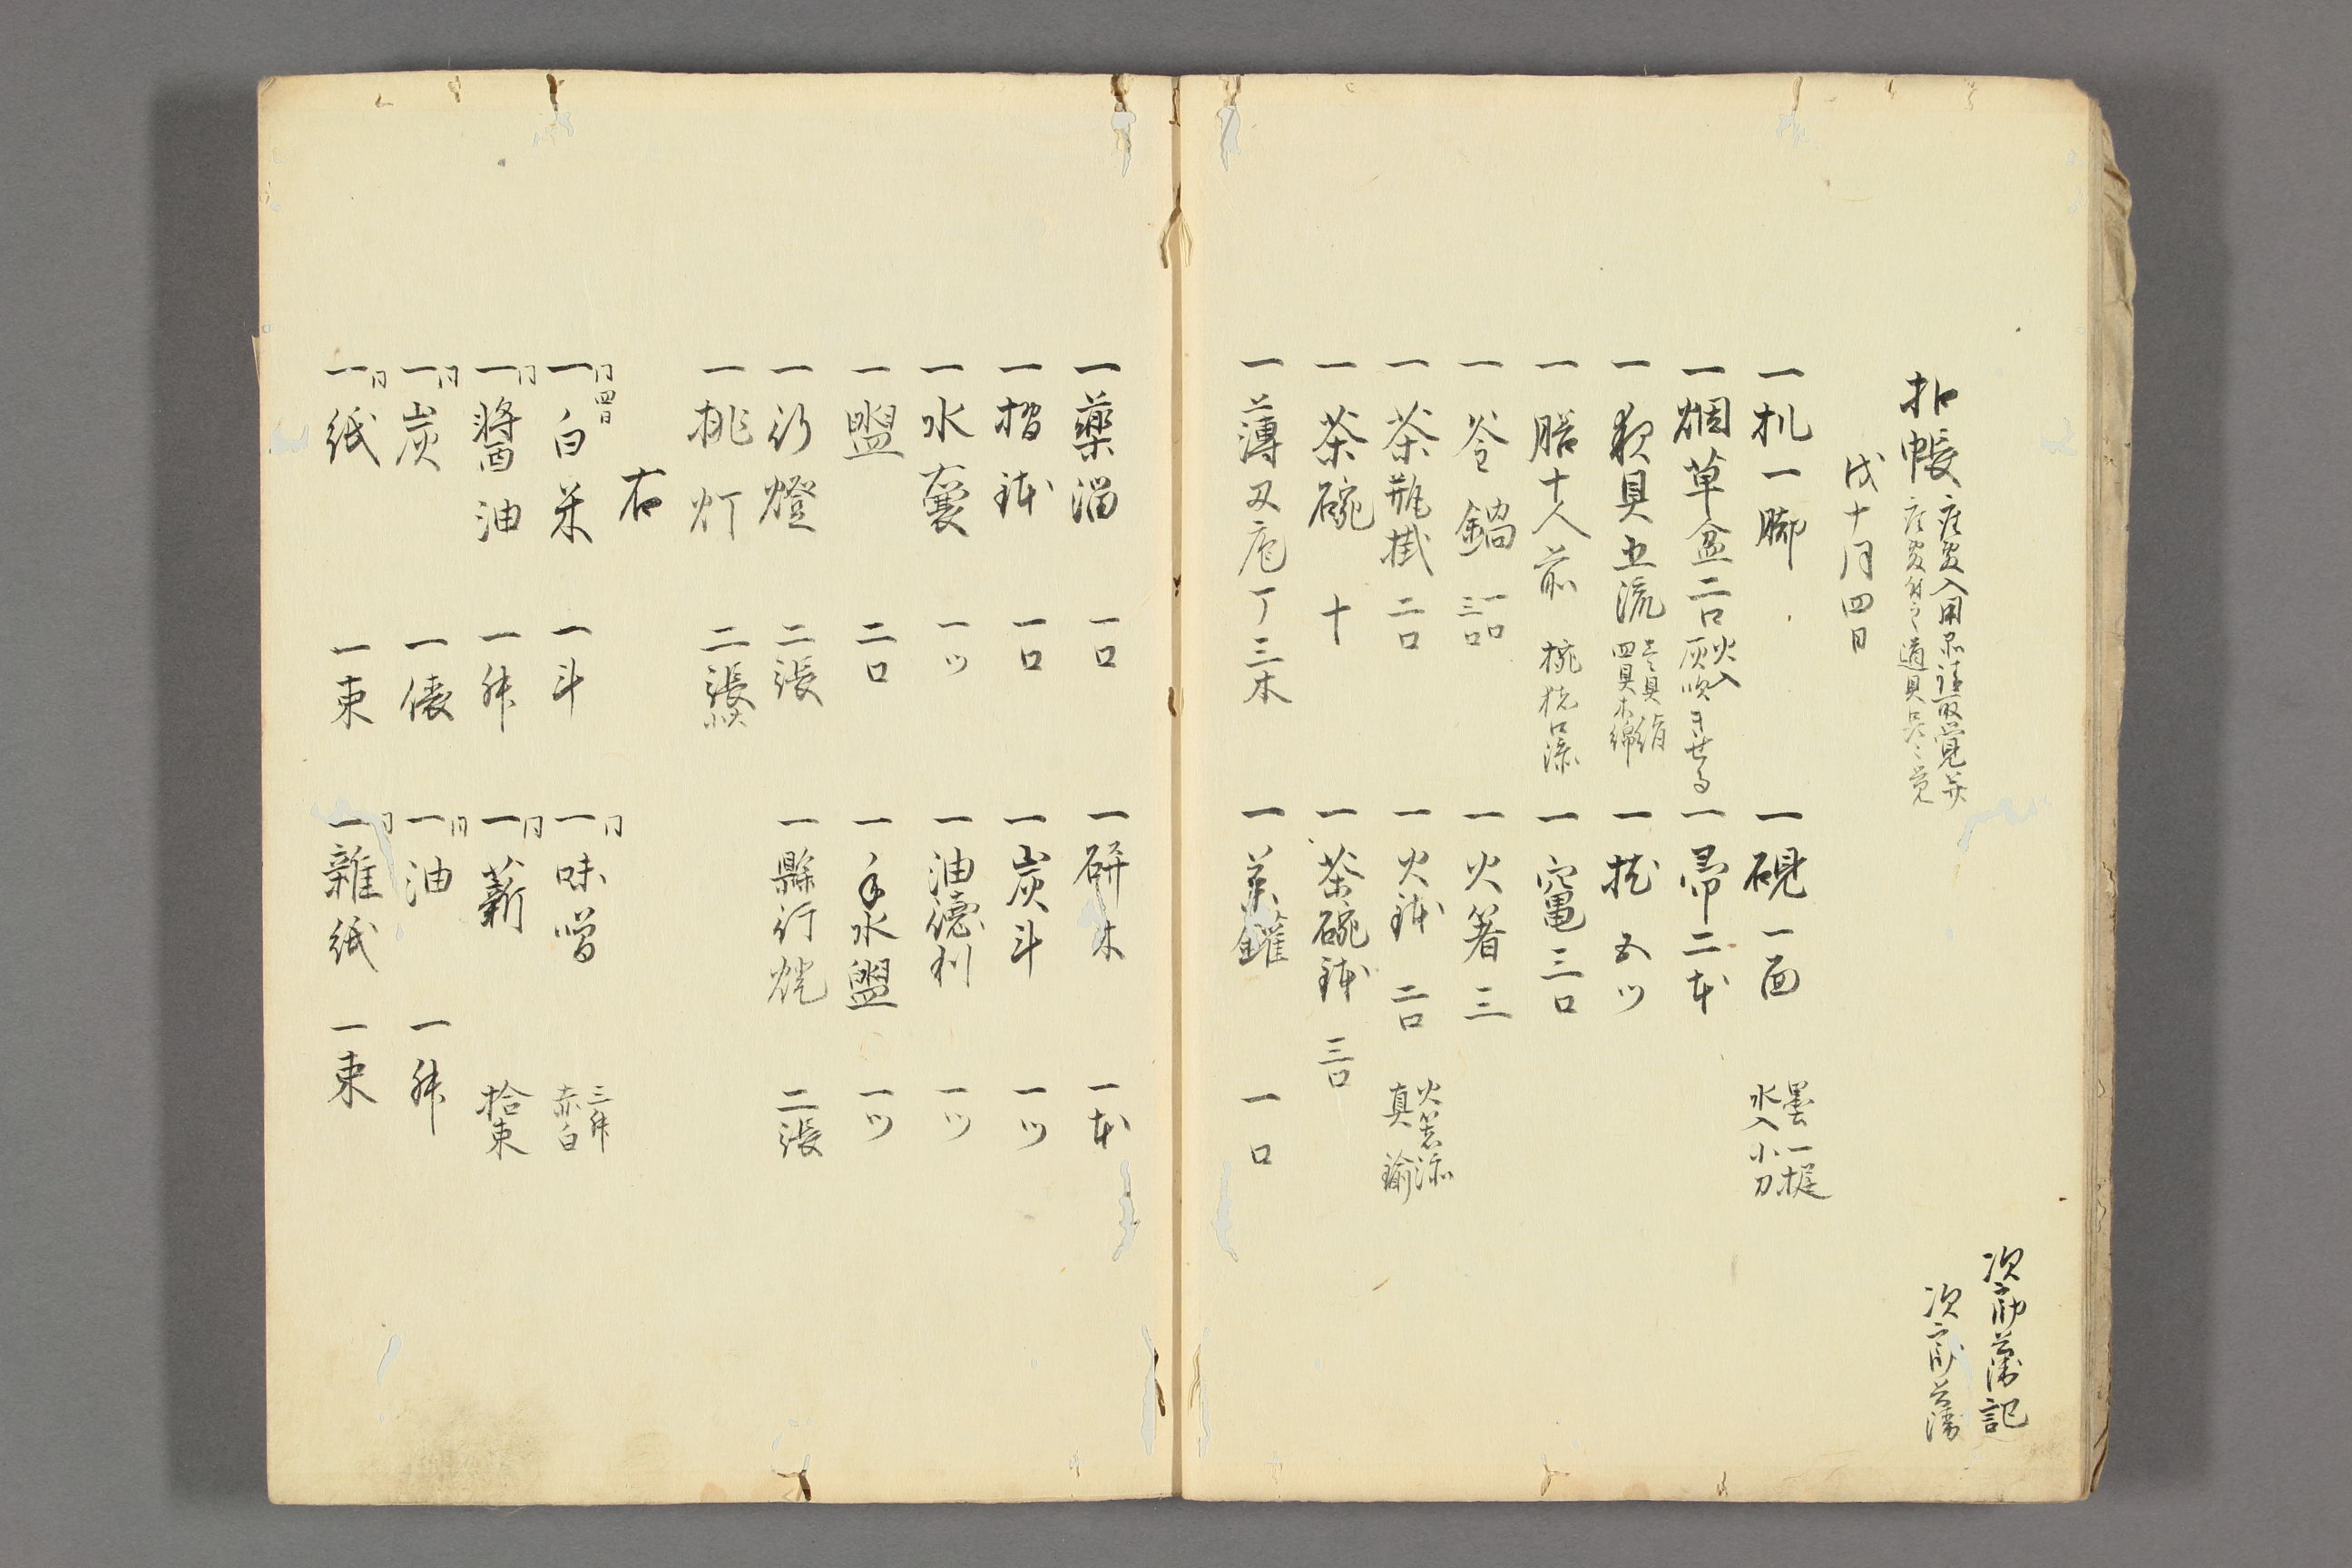 扣帳
戌十月四日
一机一脚
一硯一面 墨一挺 水入小刀
一烟草盆二口 火入 灰吹 きせる
一帚二本
一夜具五流 壱具絹 四具木綿
一枕五ツ
一膳十人前
一竈三口
一釜鍋 一口 三口
一火箸三
一茶瓶掛 二口
一火鉢 二口 火箸添 真鍮
一茶碗 十
一茶碗鉢 三口
一薄刃庖丁三本
一薬鑵 一口
一薬溜 一口
一研木 一本
一摺鉢 一口
一炭斗 一ツ
一水嚢 一ツ
一油徳利 一ツ
一盥 二口
一手水盥 一ツ
一行燈 二張
一縣行燈 二張
一桃灯 二張
右
同四日
一白米 一斗
同
一味噌 三舛 赤白
同
一醤油 一舛
同
一薪 拾束
同
一炭 一俵
同
一油 一舛
同
一紙 一束
同
一雑紙 一束